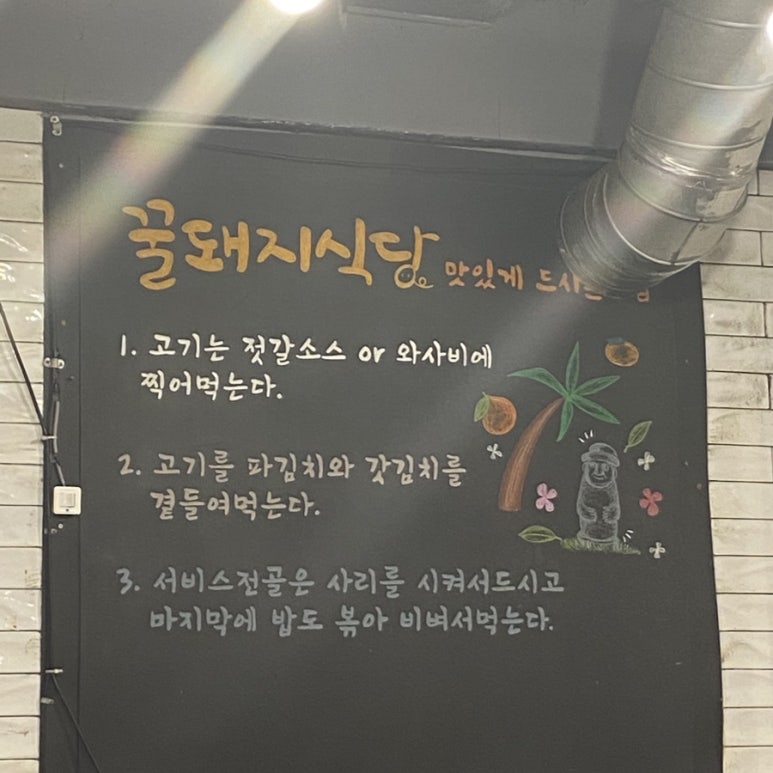 꿀돼지식당 맛있게 드시는
1. 고기는 젓갈소스 or 와사비에
찍어먹는다.
2. 고기를 파김치와 갓김치를
곁들여먹는다.
3. 서비스전골은 사리를 시켜서드시고
마지막에 밥도 볶아 비벼서먹는다.